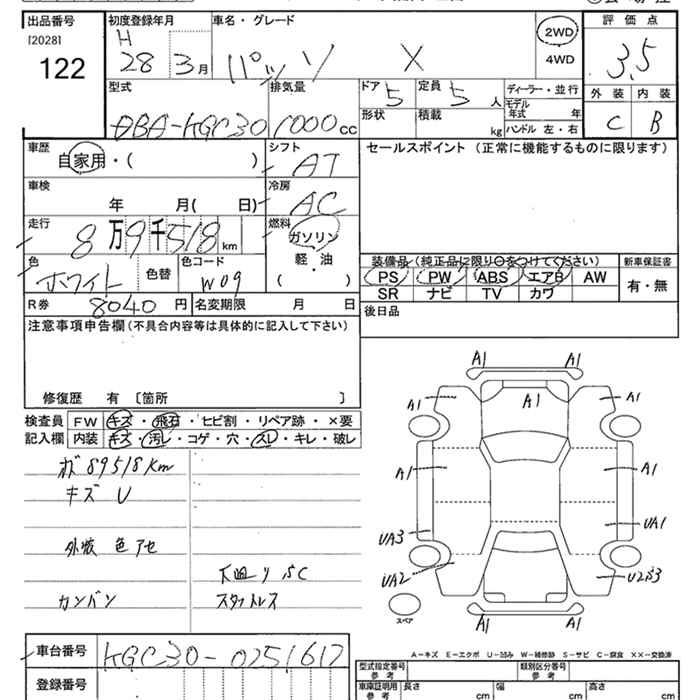 出品番号 初度登録年月 車名・グレード 評価点
[2028]
122
H
28 3月
パッソ X
2WD
4WD
3.5
外装 内装
C B
型式 排気量
DBA-KGC30 1000cc
ドア 5 定員 5人
形状 積載 kg
ディーラー・並行
モデル年式 年
ハンドル 左・右
車歴
自家用・( )
シフト
AT
車検
年 月( 日)
冷房
AC
走行
8万9千518km
燃料
ガソリン
軽・油
( )
色
ホワイト
色替
色コード
W09
R券 8040円 名変期限 月 日
セールスポイント (正常に機能するものに限ります)
装備品(純正品に限り○をつけてください) 新車保証書
PS PW ABS エアB AW 有・無
SR ナビ TV カワ
後日品
注意事項申告欄(不具合内容等は具体的に記入して下さい)
修復歴 有 〔箇所 〕
検査員 FW キズ・飛石・ヒビ割・リペア跡・×要
記入欄 内装 キズ・汚レ・コゲ・穴・スレ・キレ・破レ
89518Km
キズ U
外装 色アセ
下廻り SC
カンバン スタットレス
A1 A1
A1 A1 A1
A1 A1
UA3 UA1
UA2 U2S3
スペア
A1 A1
A-キズ E-エクボ U-凹み W-補修跡 S-サビ C-腐食 ××-交換済
車台番号 KGC30-0251617
登録番号
型式指定番号 参考 類別区分番号 参考
車庫証明用 参考 長さ cm 幅 cm 高さ cm